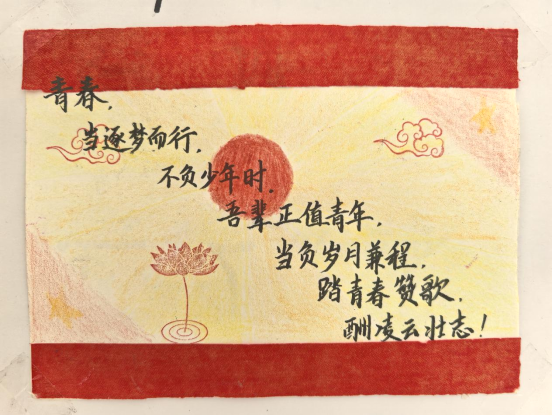 青春，
当逐梦而行，
不负少年时，
吾辈正值青年，
当负岁月兼程，
踏青春赞歌，
酬凌云壮志！